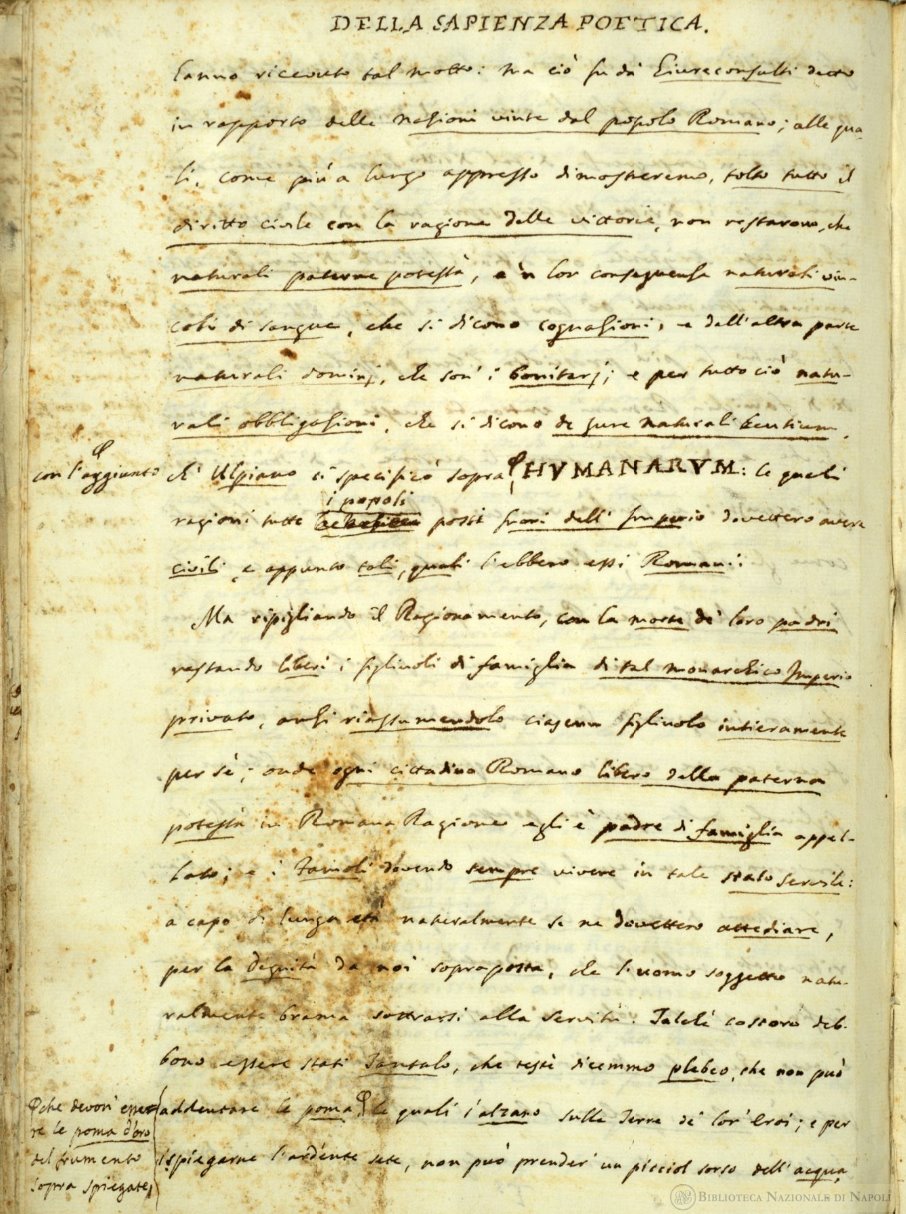 DELLA SAPIENZA POETICA.
hanno ricevuto tal motto: ma ciò fu da' Giureconsulti detto
in rapporto delle nazioni vinte dal popolo Romano; alle qua-
li, come più a lungo appresso dimostreremo, tolto tutto il
diritto civile con la ragione delle vittorie, non restarono, che
naturali paterne potestà, e 'n lor conseguenza naturali vin-
coli di sangue, che si dicono cognazioni, e dall'altra parte
naturali dominj, che son' i bonitarj; e per tutto ciò natu-
rali obbligazioni, che si dicono de jure naturali Gentium,
ch' Ulpiano ci specificò sopra HVMANARVM: le quali
con l'aggiunto
ragioni tutte i popoli posti fuori dell' Imperio dovettero avere
civili, e appunto tali, quali l'ebbero essi Romani.
Ma ripigliando il Ragionamento, con la morte de' loro padri
restando liberi i figliuoli di famiglia di tal monarchico Imperio
privato, anzi riassumendolo ciascun figliuolo intieramente
per sè; onde ogni cittadino Romano libero dalla paterna
potestà in Romana Ragione egli è padre di famiglia appel-
lato; e i Famoli dovendo sempre vivere in tale stato servile:
a capo di lunga età naturalmente se ne dovettero attediare,
per la Degnità da noi sopraposta, che l'uomo soggetto natu-
ralmente brama sottrarsi alla servitù. Talchè costoro deb-
bono essere stati Tantalo, che testè dicemmo plebeo, che non può
addentare le poma, le quali s'alzano sulle Terre de' lor' Eroi; e per
che devon' esse-
re le poma d'oro
del frumento
sopra spiegate,
ispiegarne l'ardente sete, non può prender' un picciol sorso dell'acqua,
BIBLIOTECA NAZIONALE DI NAPOLI